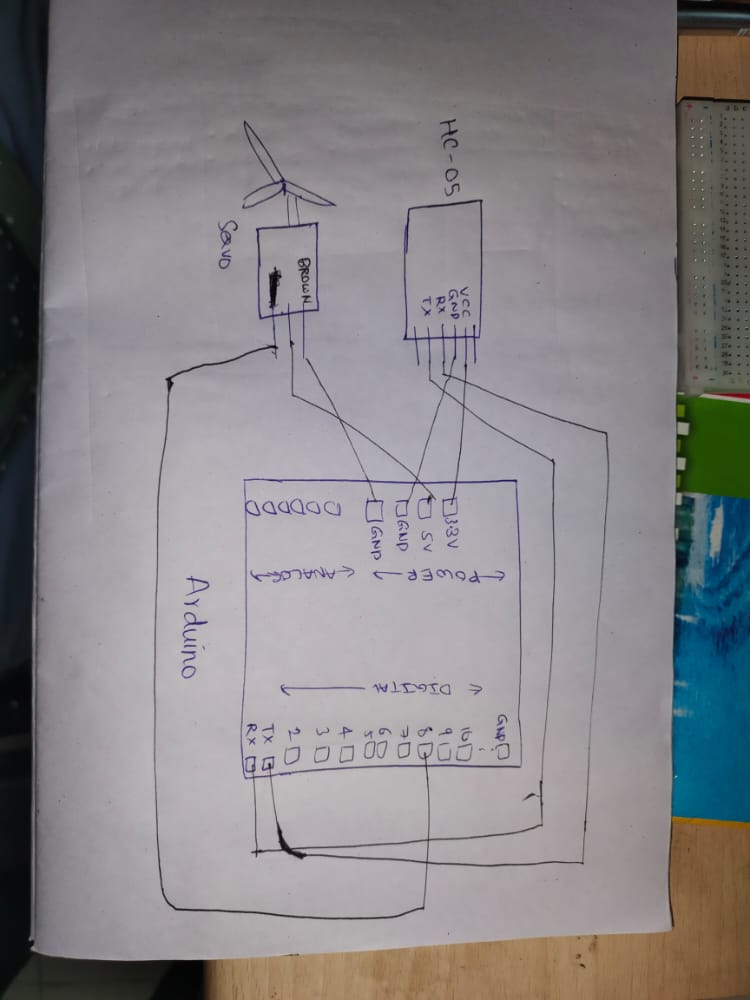 HC-05
VCC
GND
RX
TX
Servo
BROWN
3.3V
5V
GND
GND
POWER
ANALOG
Arduino
DIGITAL
GND
10
9
8
7
6
5
4
3
2
TX
RX